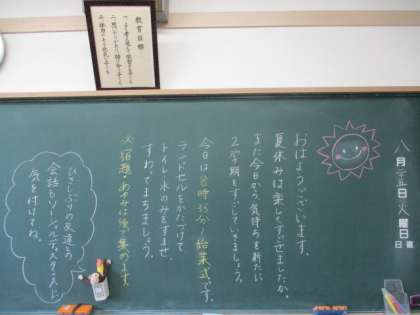 教育目標
八月二五日火曜日
日直
おはようございます。
夏休みは楽しくすごせましたか。
また今日から、気持ちを新たに
2学期をすごしていきましょう。
今日は8時35分〜始業式です。
ランドセルをかたづけて
トイレ・水のみをすませ、
すわってまちましょう。
※宿題、あゆみは後で集めます。
ひさしぶりの友達との
会話もソーシャルディスタンスに
気を付けてね。